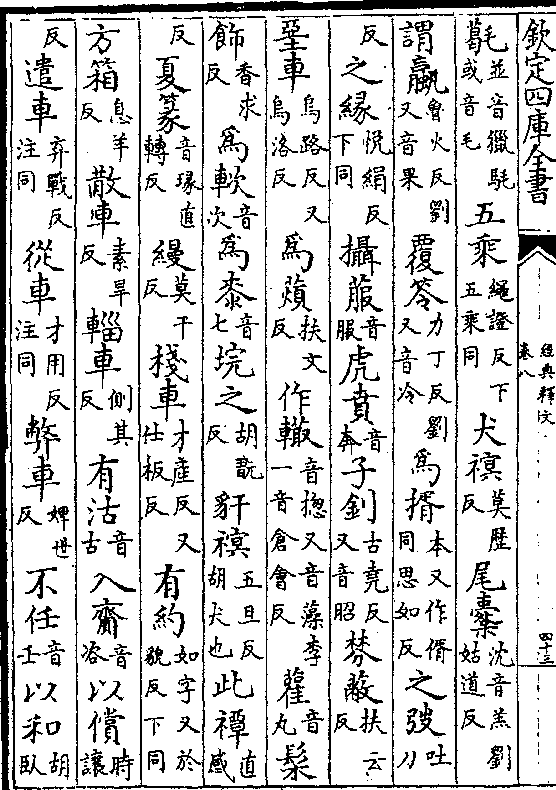 欽定四庫全書
經典釋文
卷八
四十三
毛並音獵駀
鬣或音毛五乘繩證反下五乘同犬𧝓莫歷反尾櫜沈音羔劉姑道反
謂羸魯火反劉又音果覆笭力丁反劉又音冷爲揟本又作偦同思如反之弢吐刀
反之緣悦絹反下同攝菔音服虎賁音奔子釗古堯反又音昭棼蔽扶云反
堊車烏路反又烏洛反爲薠扶文反作轍音揔又音藻李一音倉會反雚音丸髤
飾香求反爲軟音次爲桼音七垸之胡翫反豻𧝓五旦反胡犬也此禫直感
反夏篆音瑑直轉反縵莫干反棧車才産反又仕板反有約如字又於貌反下同
方箱息羊反散車素旱反輜車側其反有沽音古入齎音咨以償時讓
反遣車弃戰反注同從車才用反注同弊車婢世反不任音壬以和胡臥